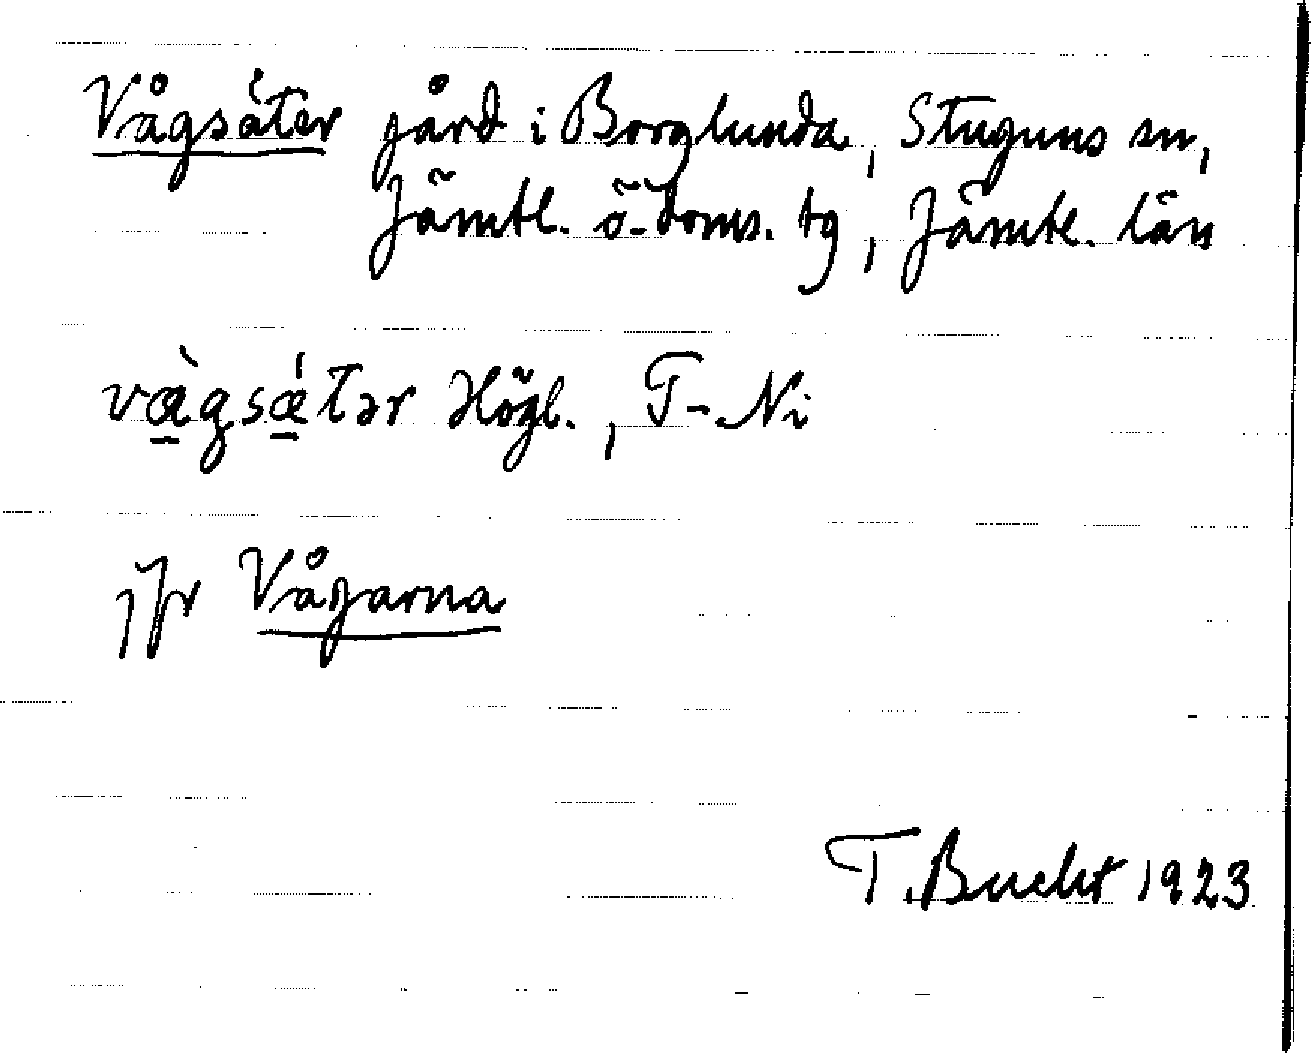 Vågsäter gård i Borglunda, Stuguns sn,
Jämtl. ö. doms. tg, Jämtl. län
vàgsǽtər Högl., T-Ni
jfr Vågarna
T. Bucht 1923